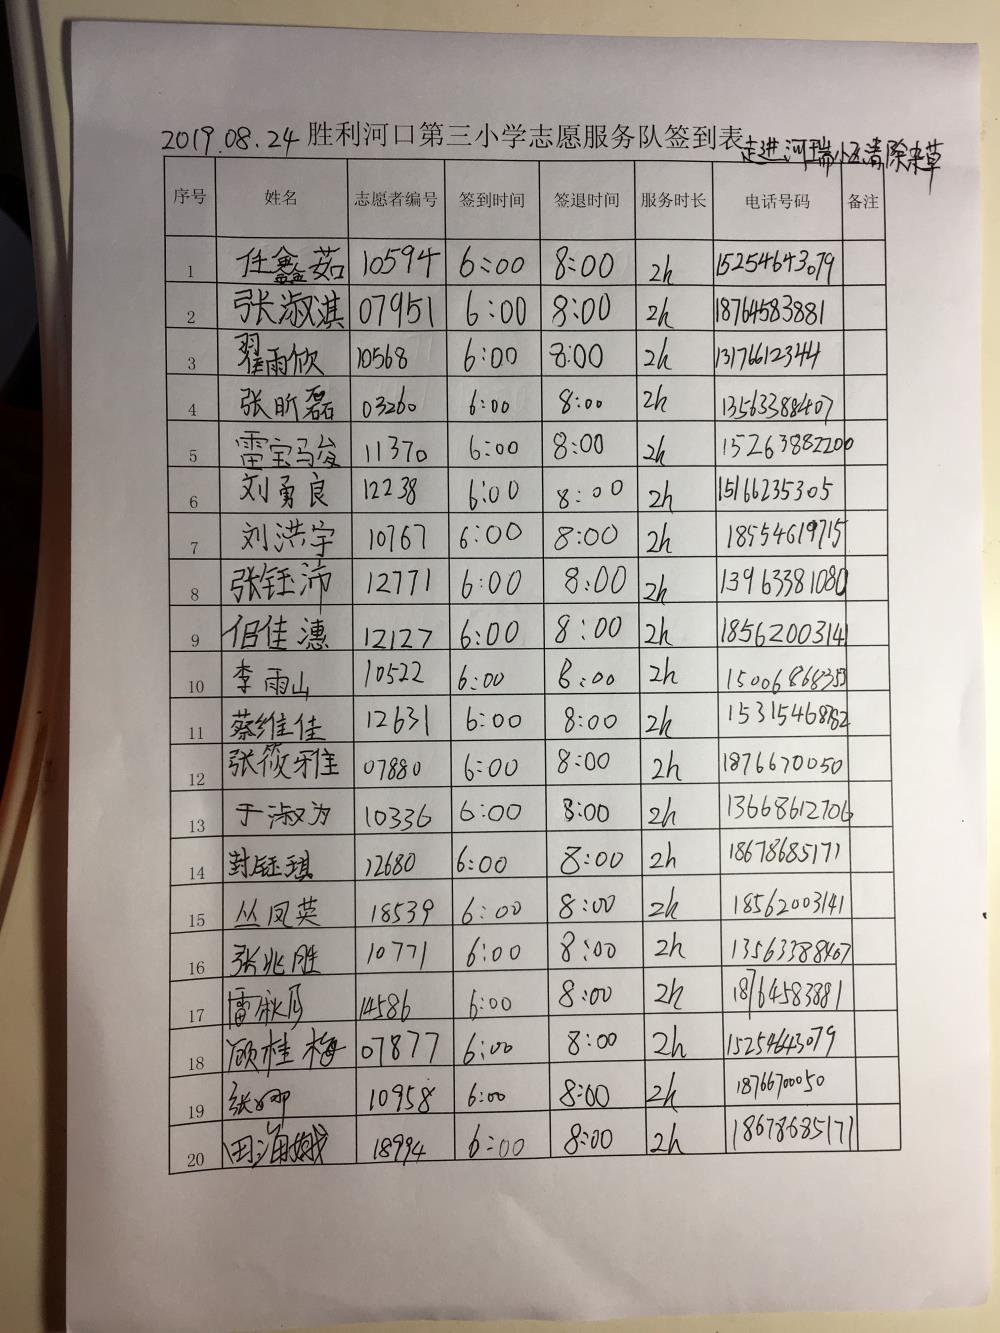 2019.08.24 胜利河口第三小学志愿服务队签到表 走进河瑞小区清除杂草
序号 姓名 志愿者编号 签到时间 签退时间 服务时长 电话号码 备注
1 任鑫茹 10594 6:00 8:00 2h 15254643079
2 张淑淇 07951 6:00 8:00 2h 18764583881
3 翟雨欣 10568 6:00 8:00 2h 13176612344
4 张昕磊 03260 6:00 8:00 2h 13563388407
5 雷宝骏 11370 6:00 8:00 2h 15263882200
6 刘勇良 12238 6:00 8:00 2h 15166235305
7 刘洪宇 10767 6:00 8:00 2h 18554619715
8 张钰沛 12771 6:00 8:00 2h 13963381080
9 佀佳潓 12127 6:00 8:00 2h 18562003141
10 李雨山 10522 6:00 8:00 2h
11 蔡维佳 12631 6:00 8:00 2h
12 张筱雅 07880 6:00 8:00 2h 18766700050
13 于淑为 10336 6:00 8:00 2h 13668612706
14 封钰琪 12680 6:00 8:00 2h 18678685171
15 丛凤英 18539 6:00 8:00 2h 18562003141
16 张兆胜 10771 6:00 8:00 2h 13563388407
17 雷秋月 14586 6:00 8:00 2h 18764583881
18 顾桂梅 07877 6:00 8:00 2h 15254643079
19 张娜 10958 6:00 8:00 2h 18766700050
20 田海娥 18994 6:00 8:00 2h 18678685171